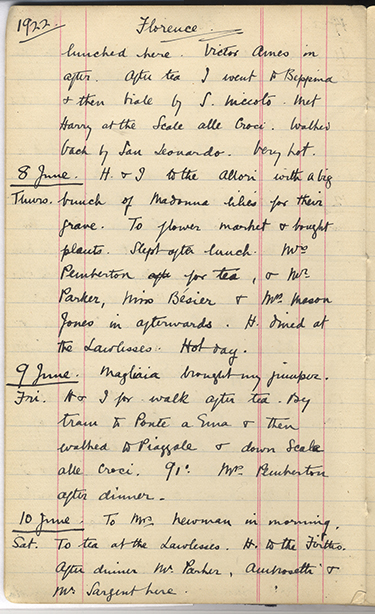 1922. Florence.
lunched here. Victor Ames in
after. After tea I went to Beppina
& then Viale by S. Niccolo. Met
Harry at the Scale alle Croci. Walked
back by San Leonardo. Very hot.
8 June. H. & I to the Allori with a big
Thurs. bunch of Madonna lilies for their
grave. To flower market & bought
plants. Slept after lunch. Mrs
Pemberton for tea, & Mr.
Parker, Miss Bésier & Mrs. Mason
Jones in afterwards. H. dined at
the Lawlesses. Hot day.
9 June. brought my jumper.
Fri. H & I for walk after tea. By
tram to Ponte a Ema & then
walked to Piazzale & down Scale
alle Croci. 91°. Mrs. Pemberton
after dinner.
10 June. To Mrs. Newman in morning.
Sat. To tea at the Lawlesses. H. to the Firths.
After dinner Mr. Parker, Ambrosetti &
Mr. Sargent here.